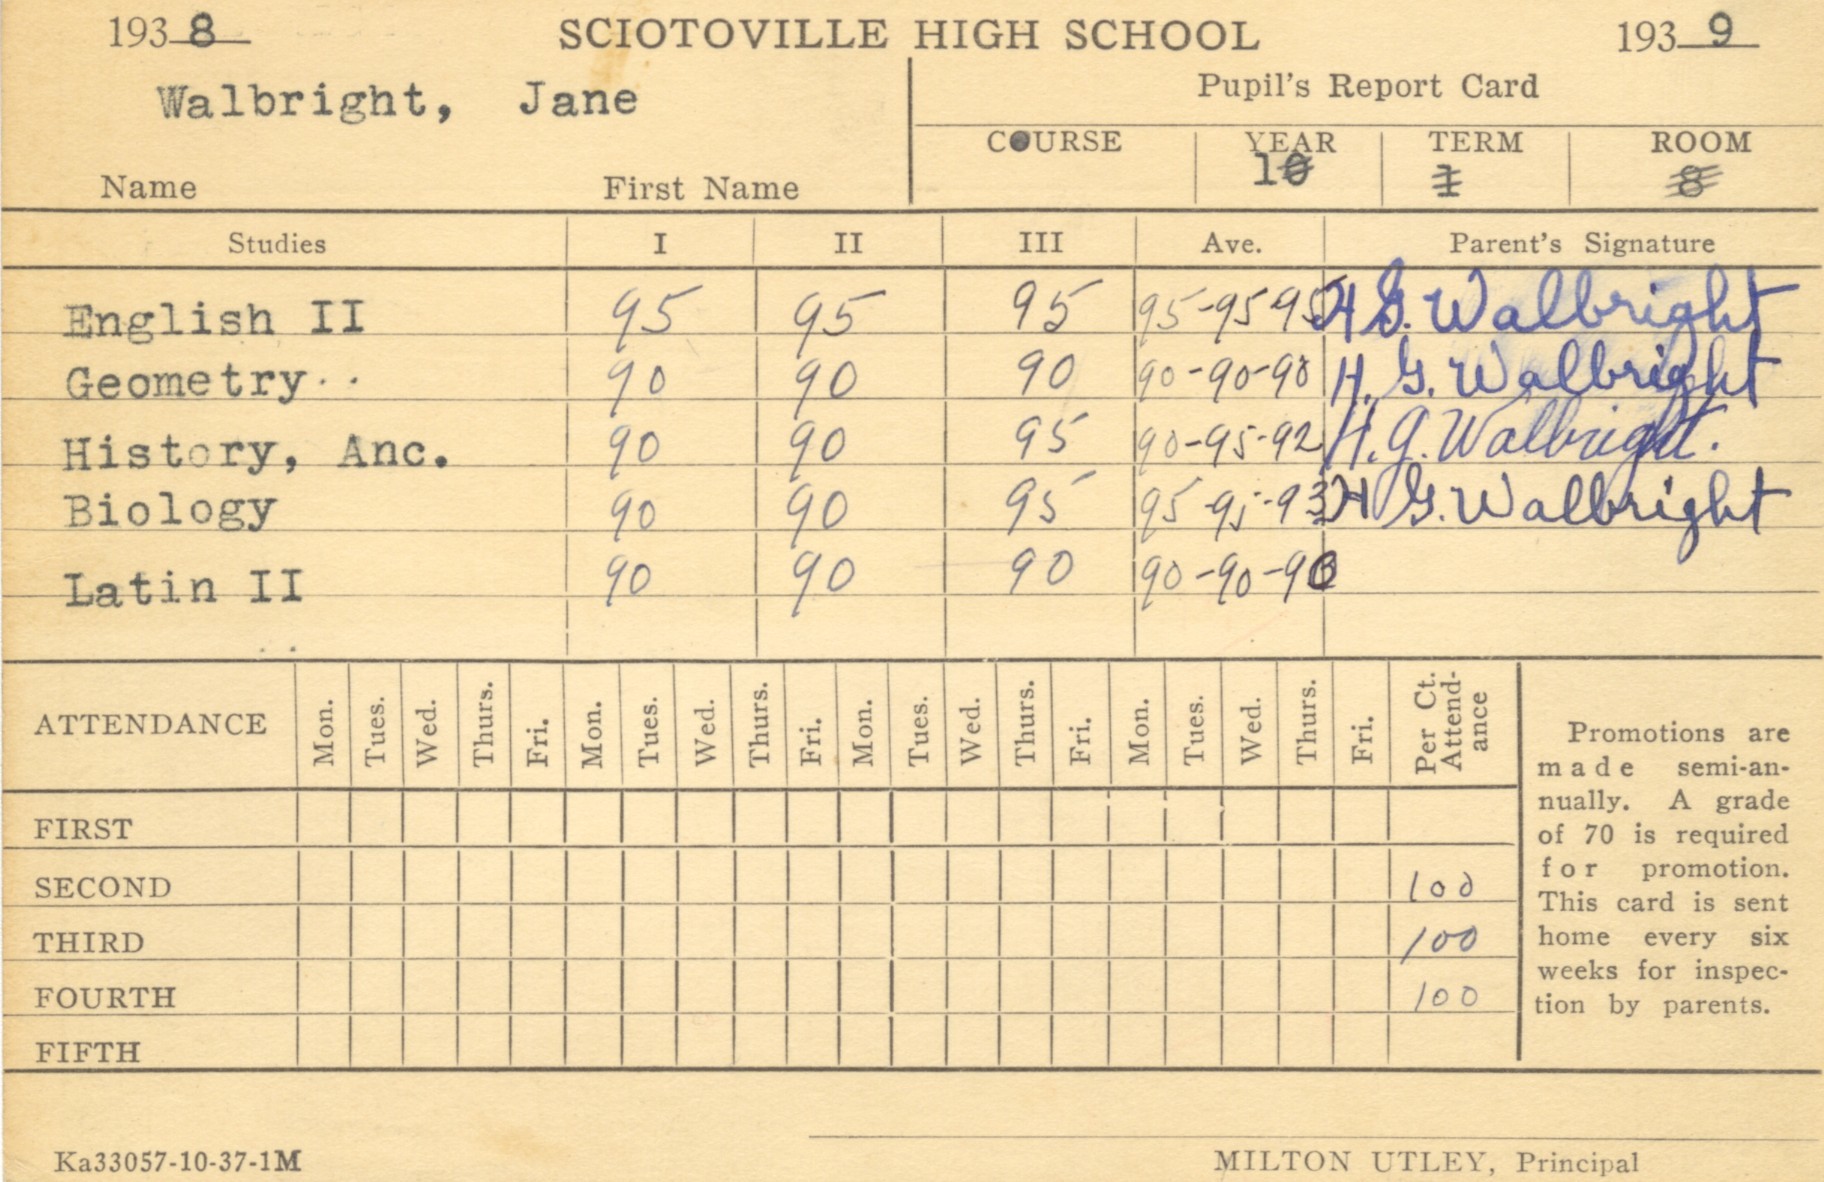 193 8 SCIOTOVILLE HIGH SCHOOL 193 9
Walbright, Jane
Name First Name
Pupil's Report Card
COURSE YEAR TERM ROOM
10 1 8
Studies I II III Ave. Parent's Signature
English II 95 95 95 95-95 95 H G. Walbright
Geometry 90 90 90 90-90-90 H. G. Walbright
History, Anc. 90 90 95 90-95-92 H. G. Walbright.
Biology 90 90 95 95-95-93 H G. Walbright
Latin II 90 90 90 90-90-90
ATTENDANCE Mon. Tues. Wed. Thurs. Fri. Mon. Tues. Wed. Thurs. Fri. Mon. Tues. Wed. Thurs. Fri. Mon. Tues. Wed. Thurs. Fri. Per Ct. Attend-ance
FIRST
SECOND 100
THIRD 100
FOURTH 100
FIFTH
Promotions are
made semi-an-
nually. A grade
of 70 is required
for promotion.
This card is sent
home every six
weeks for inspec-
tion by parents.
Ka33057-10-37-1M MILTON UTLEY, Principal